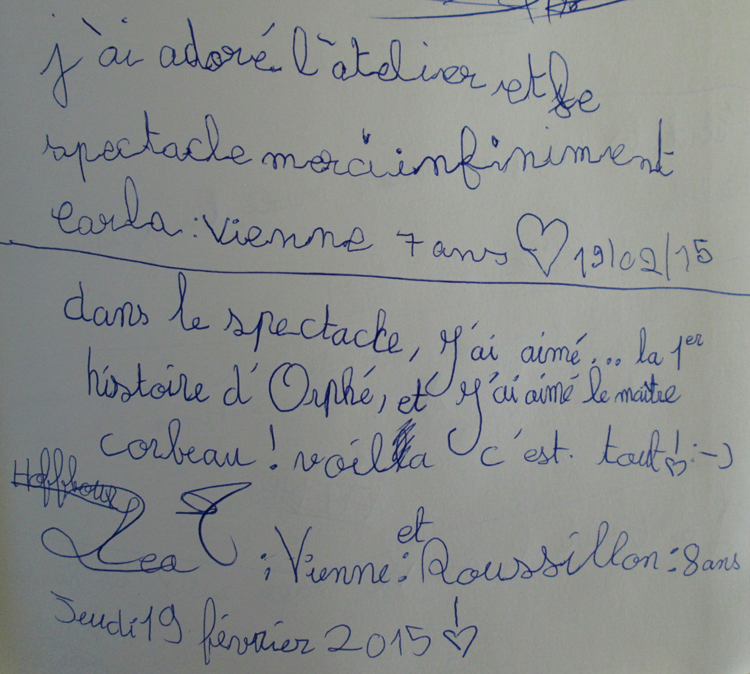 j'ai adoré l'àtelier et le
spectacle merci infiniment
Carla : Vienne 7 ans ♡ 19/02/15
dans le spectacke, j'ai aimé... la 1er
histoire d'Orphé, et j'ai aimé le maître
corbeau ! voilà c'est. tout ! :-)
Lea T ; Vienne : et Roussillon : 8 ans
Jeudi 19 février 2015 ! ♡